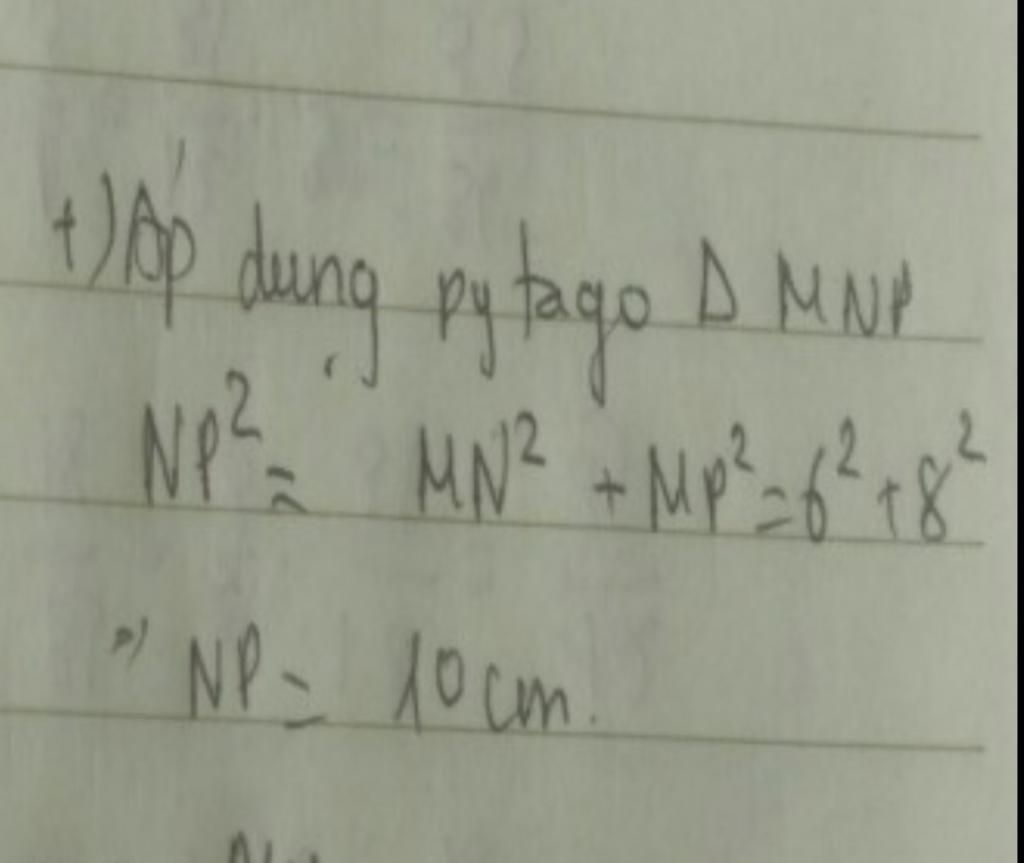 +) Áp dụng pytago Δ MNP
NP² = MN² + MP² = 6² + 8²
=) NP = 10 cm.